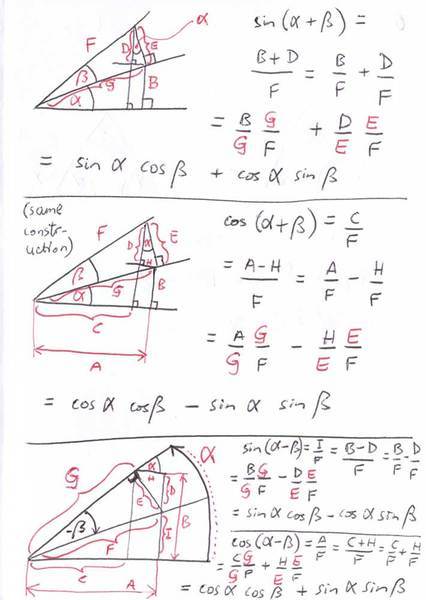 α
F D E
β G B
α
sin(α+β) =
B+D/F = B/F + D/F
= B/G G/F + D/E E/F
= sin α cos β + cos α sin β
(same constr-uction)
F D α E
H
β G B
α
C
A
cos(α+β) = C/F
= A-H/F = A/F - H/F
= A/G G/F - H/E E/F
= cos α cos β - sin α sin β
G α α
H
D
E B
-β I
F
C
A
sin(α-β) = I/F = B-D/F = B/F - D/F
= B/G G/F - D/E E/F
= sin α cos β - cos α sin β
cos(α-β) = A/F = C+H/F = C/F + H/F
= C/G G/F + H/E E/F
= cos α cos β + sin α sin β